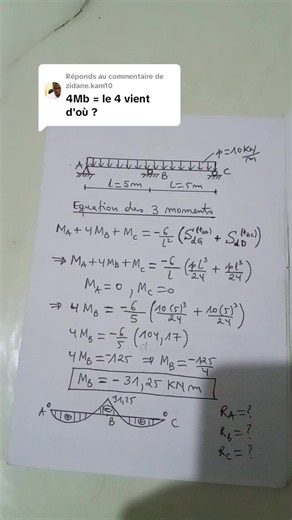 Réponds au commentaire de
zidane.kam10
4Mb = le 4 vient
d'où ?
p=10KN/m
A B C
L=5m L=5m
Equation des 3 moments
MA + 4MB + MC = -6/L² (
⇒ MA + 4MB + MC = -6/L (pl³/24 + pl³/24)
MA = 0 , MC = 0
⇒ 4 MB = -6/5 (10(5)³/24 + 10(5)³/24)
4 MB = -6/5 (104,17)
4 MB = -125 ⇒ MB = -125/4
MB = - 31,25 KN m
31,25
A B C
RA = ?
RB = ?
RC = ?